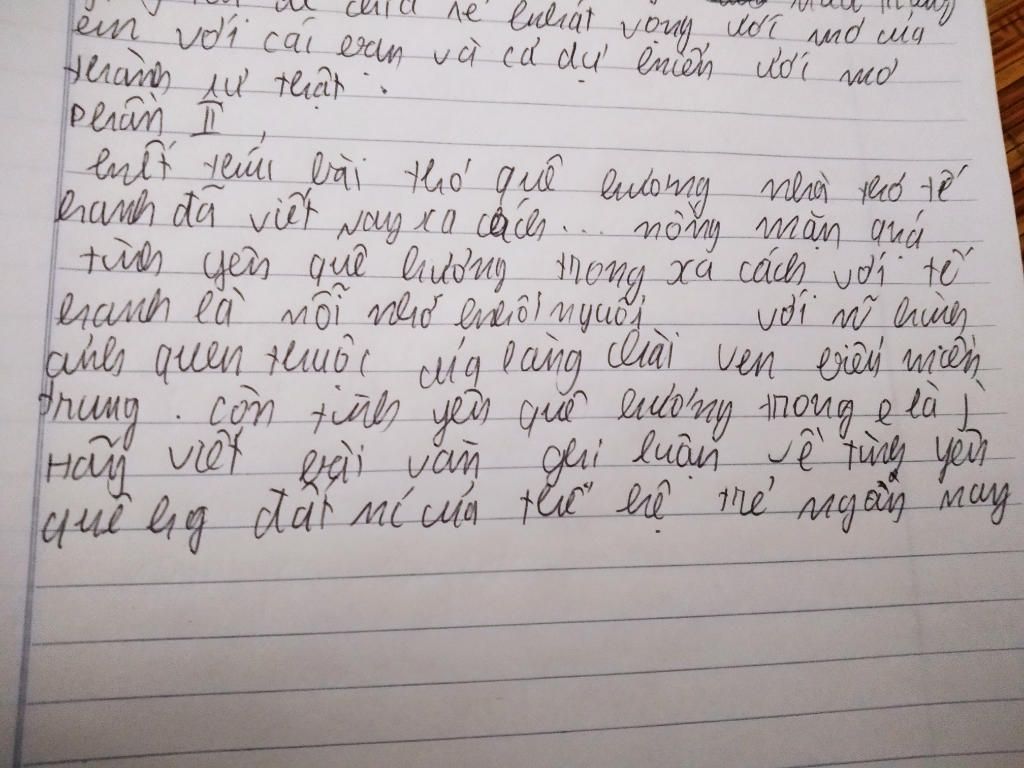 để chia sẻ khát vọng ước mơ của
em với các bạn và cả dự kiến ước mơ
thành sự thật.
Phần II,
kết thúc bài thơ quê hương nhà thơ tế
hanh đã viết nay xa cách... nồng mặn quá
tình yên quê hương trong xa cách với tế
hanh là nỗi nhớ khôn nguôi với nh hình
ảnh quen thuộc của làng chài ven biển miền
trung. còn tình yên quê hương trong e là j
Hãy viết bài văn ghi luận về tình yên
quê hg đất nc của thế hệ trẻ ngày nay